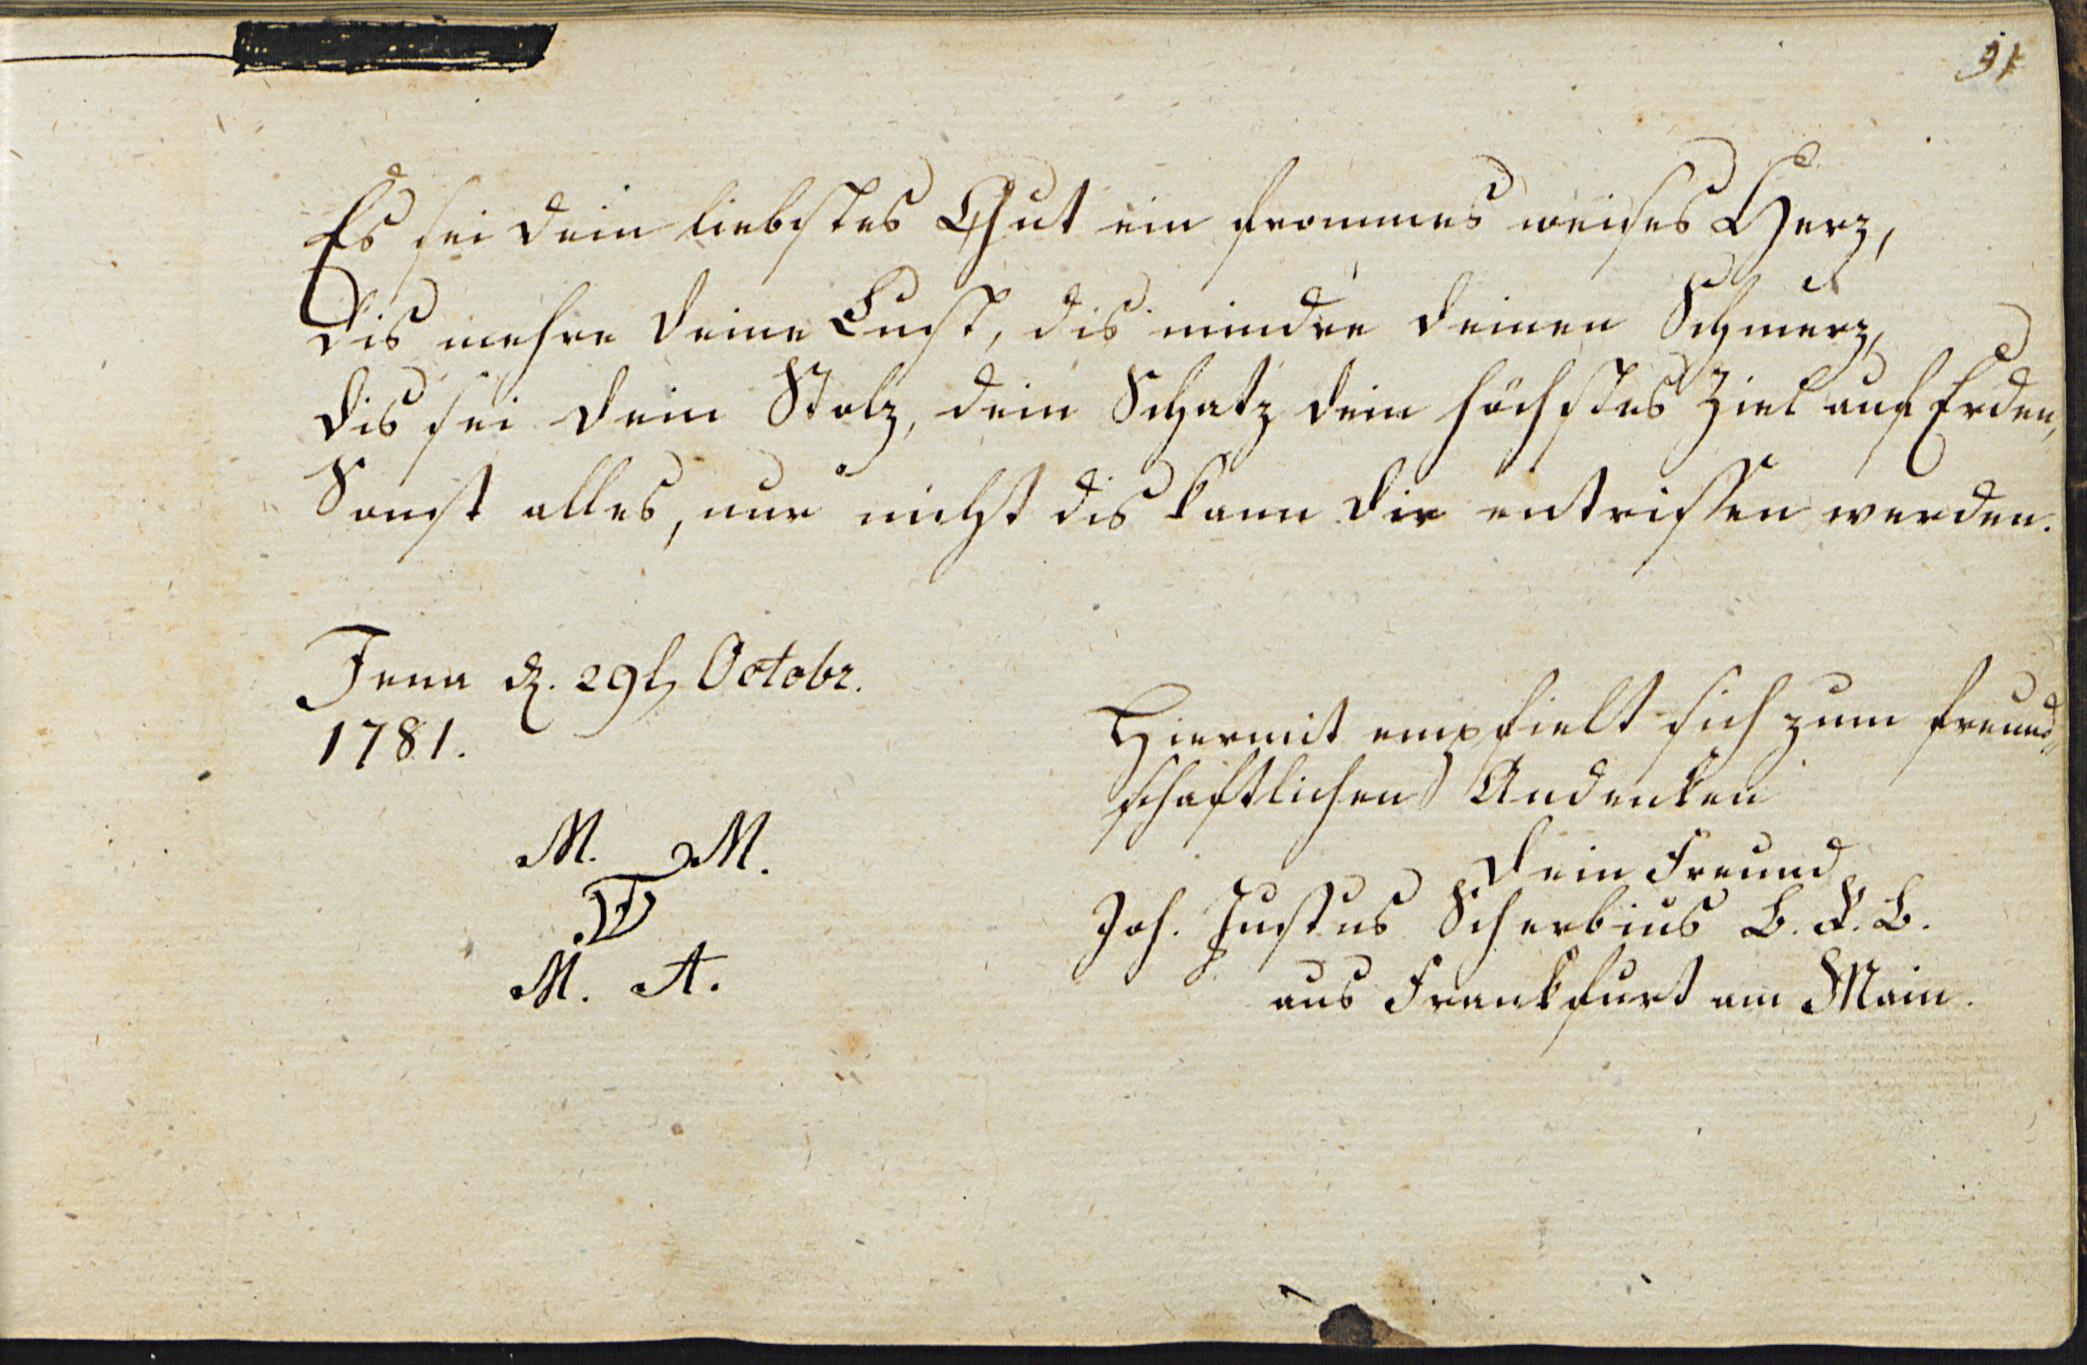 91
Es sei dein liebstes Gut ein frommes weises Herz,
dis mehre deine Lust, dis mindre deinen Schmerz,
dis sei dein Stolz, dein Schatz dein höchstes Ziel auf Erden,
Sonst alles, nur nicht dis kann dir entrissen werden.
Jena d. 29 Octobr.
1781.
Hiermit empfielt sich zum freund„
schaftlichen Andenken
dein Freund
Joh. Justus Scherbius
aus Frankfurt am Main.
M. M.
M. A.